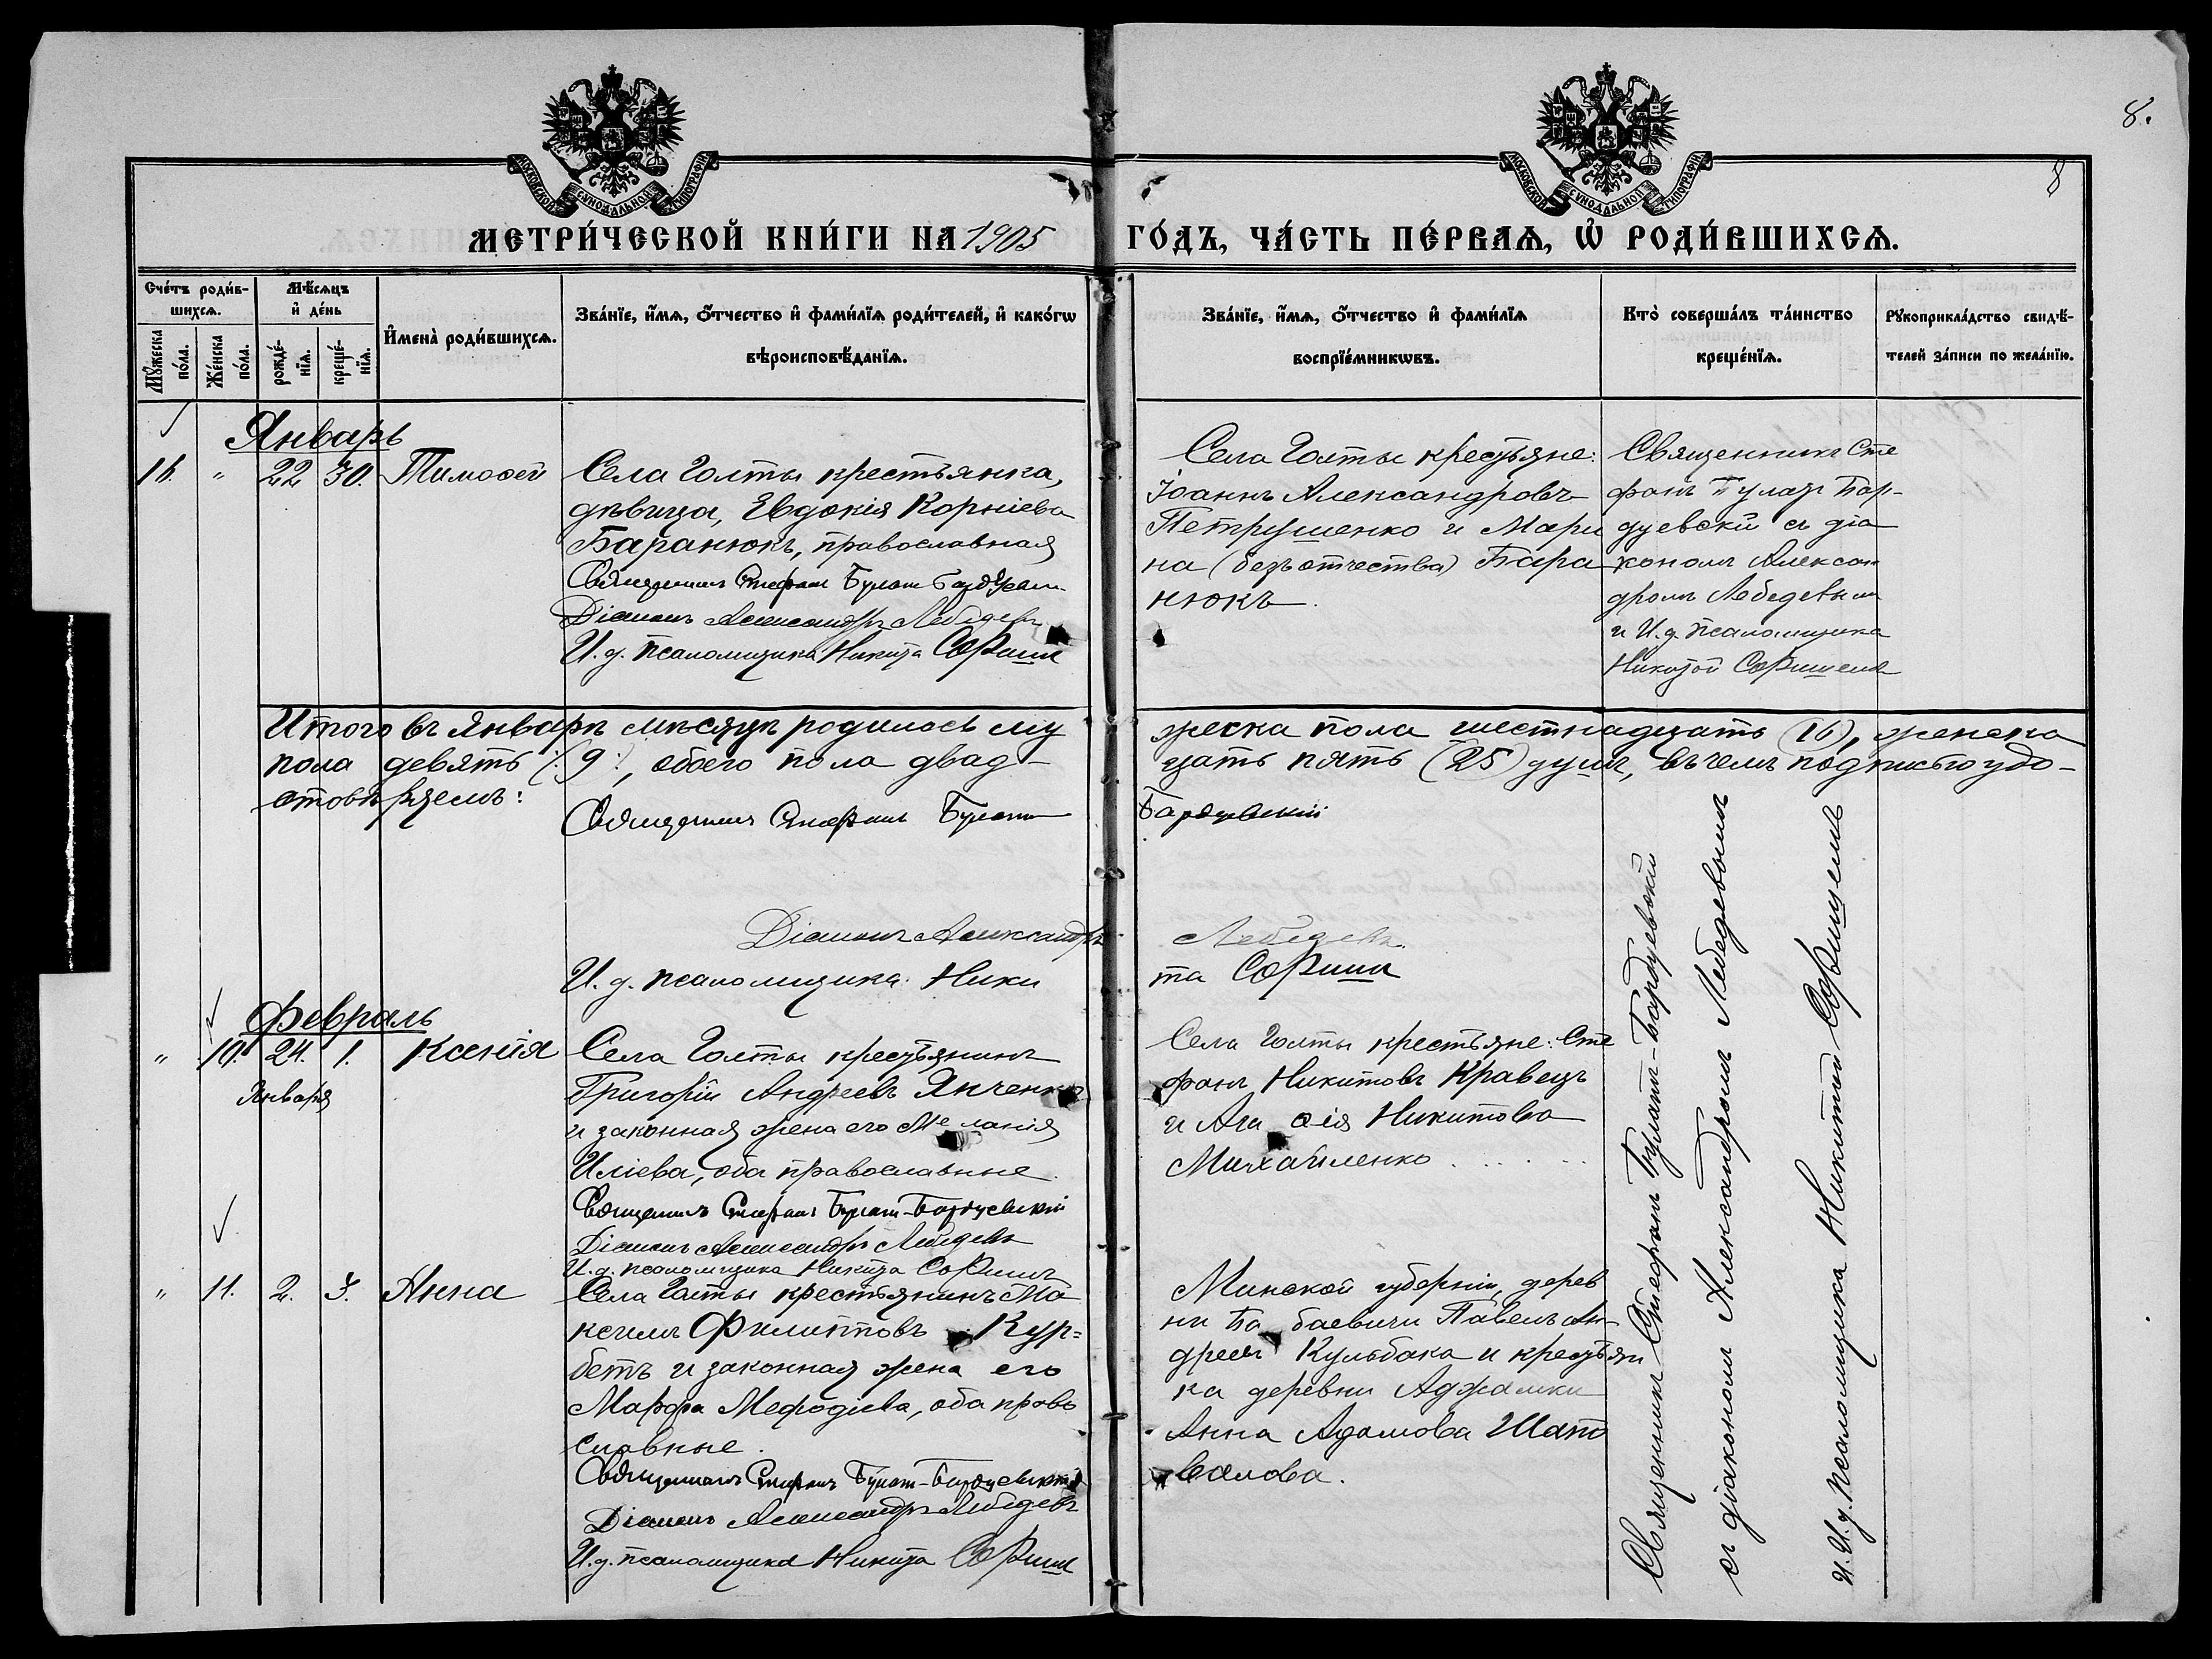 8.
8
МОСКОВСКОЙ СѴНОДАЛЬНОЙ ТИПОГРАФІИ
МОСКОВСКОЙ СѴНОДАЛЬНОЙ ТИПОГРАФІИ
МЕТРИ́ЧЕСКОЙ КНИ́ГИ НА 1905 ГО́ДЪ, ЧА́СТЬ ПЕ́РВАѦ, Ѡ҆ РОДИ́ВШИХСѦ.
Сче́тъ роди́в-
шихсѧ.
Мꙋ́жеска
по́ла.
Же́нска
по́ла.
Мѣ́сѧцъ
и҆ де́нь
рожде́-
нїѧ.
креще́-
нїѧ.
И҆мена̀ роди́вшихсѧ.
Зва́нїе, и҆́мѧ, ѻ҆́тчество и҆ фами́лїѧ роди́телей, и҆ како́гѡ
вѣроисповѣ́данїѧ.
Зва́нїе, и҆́мѧ, ѻ҆́тчество и҆ фами́лїѧ
воспрїе́мникѡвъ.
Кто̀ соверша́лъ та́инство
креще́нїѧ.
Рꙋкоприкла́дство свидѣ́-
телей за́писи по жела́нїю.
Январь
16. " 22 30. Тимоѳей
Села Голты крестьянка,
дѣвица, Евдокія Корніева
Баранюкъ, православная
Священникъ Стефанъ Булат Бардуевскій
Діаконъ Александръ Лебедевъ
И. д. псаломщика Никита Софиш
Села Голты крестьяне:
Іоаннъ Александровъ
Петрушенко и Мари
на (безъ отчества) Бара
нюкъ.
Священникъ Сте
фанъ Булат Бар-
дуевскій съ діа
кономъ Алексан
дромъ Лебедевым
и И. д. псаломщика
Никитой Софишемъ
Итого въ Январѣ мѣсяцѣ родилось му
жеска пола шестнадцать (16), женска
пола девять (:9:), обоего пола двад-
цать пять (25) душъ, въ чемъ подписью удо-
стовѣряемъ:
Священникъ Стефанъ Булат
Бардуевскій
Діаконъ Александръ
Лебедевъ
И. д. псаломщика Ники
та Софиш
Февраль
" 10. 24. 1. Ксенія
Января
Села Голты крестьянинъ
Григорій Андреевъ Янченко
и законная жена его Меланія
Иліева, оба православные.
Священникъ Стефанъ Булат-Бардуевскій
Діаконъ Александръ Лебедевъ
И. д. псаломщика Никита Софишъ
Села Голты крестьяне: Сте
фанъ Никитовъ Кравецъ
и Ага ѳія Никитова
Михайленко
" 11. 2. 3. Анна
Села Голты крестьянинъ Ма
ксимъ Филипповъ Кур=
бетъ и законная жена его
Марфа Мефодіева, оба право
славные.
Священникъ Стефанъ Булат-Бардуевскій
Діаконъ Александръ Лебедевъ
И. д. псаломщика Никита Софиш
Минской губерніи, дерев
ни Ба баевичи Павелъ Ан-
дреев Кульбака и крестьян
ка деревни Аджамки
Анна Адамова Шапо
валова.
Священникъ Стефанъ Булатъ-Бардуевскій
съ діакономъ Александромъ Лебедевымъ
и И. д. псаломщика Никитой Софишемъ